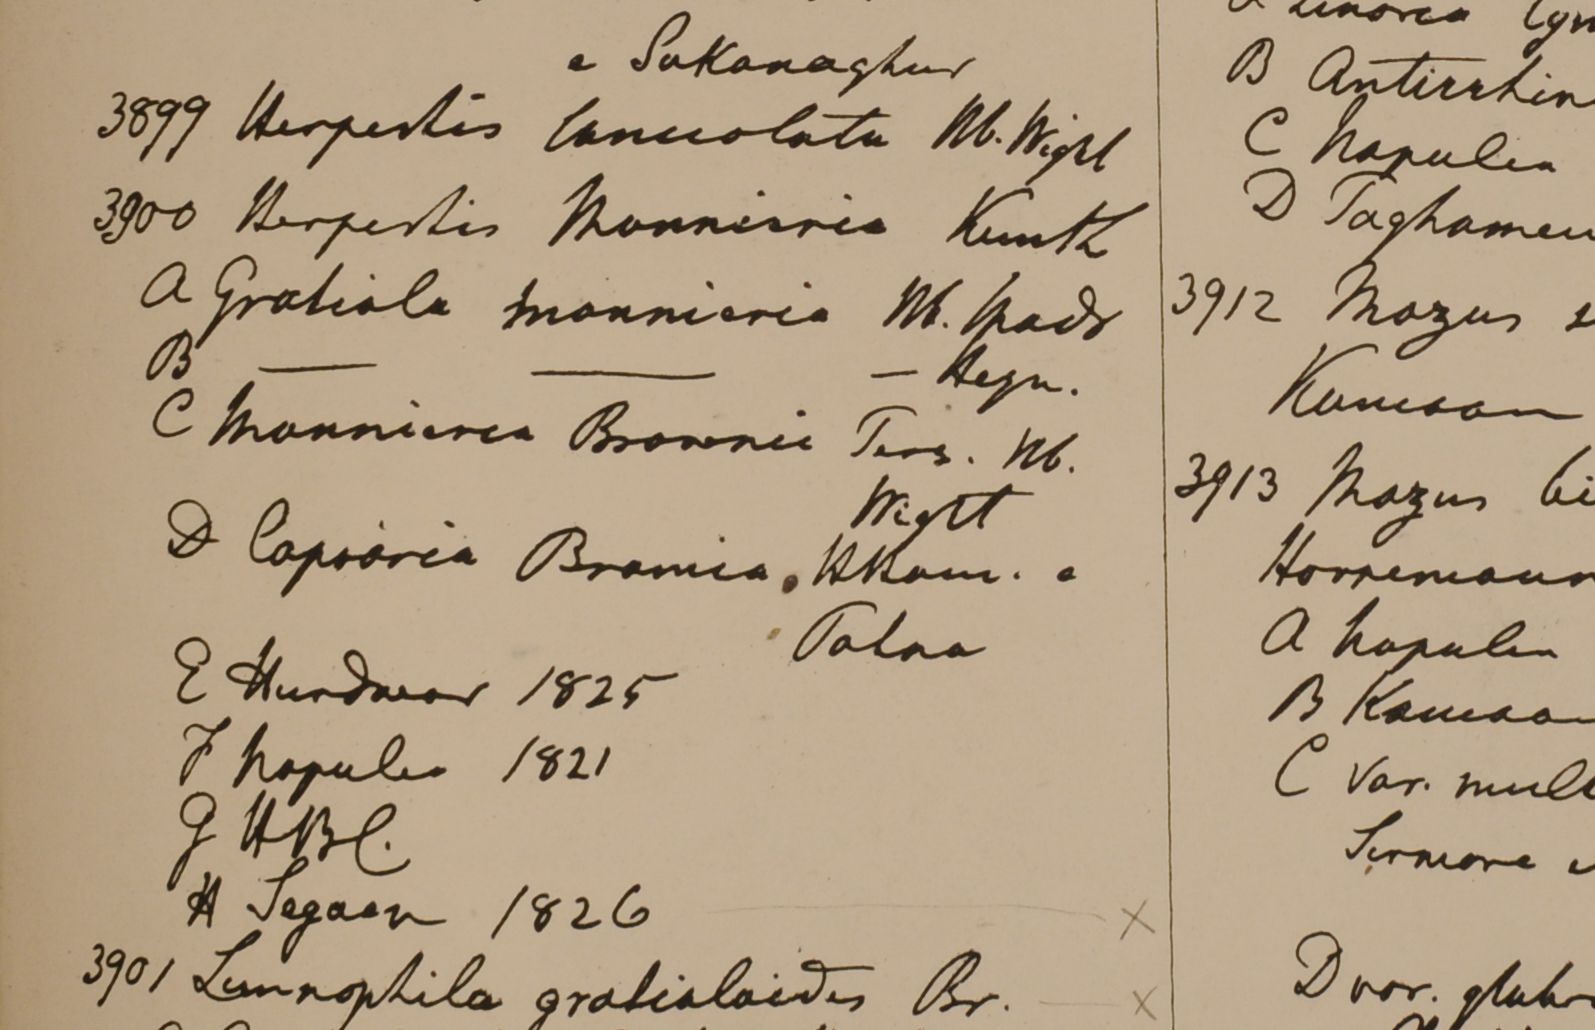 e Sukanaghur
3899 Herpestis lanceolata Hb. Wight
3900 Herpestis Monnieria Kunth
A Gratiola monnieria Hb. Madr
B — — — Heyn.
C Monnieria Brownei Pers. Hb.
Wight
D Capraria Bramia HHam. e
Patna
E Hurdwar 1825
F Napulia 1821
G HBC.
H Segaen 1826 x
3901 Limnophila gratioloides Br. x
B Antirrhin
C Napulia
D Taghameu
3912 Mazus
Kamaon
3913 Mazus
Hornemann
A Napulia
B Kamaon
C Var. mult
Sirmore
D var. glabr